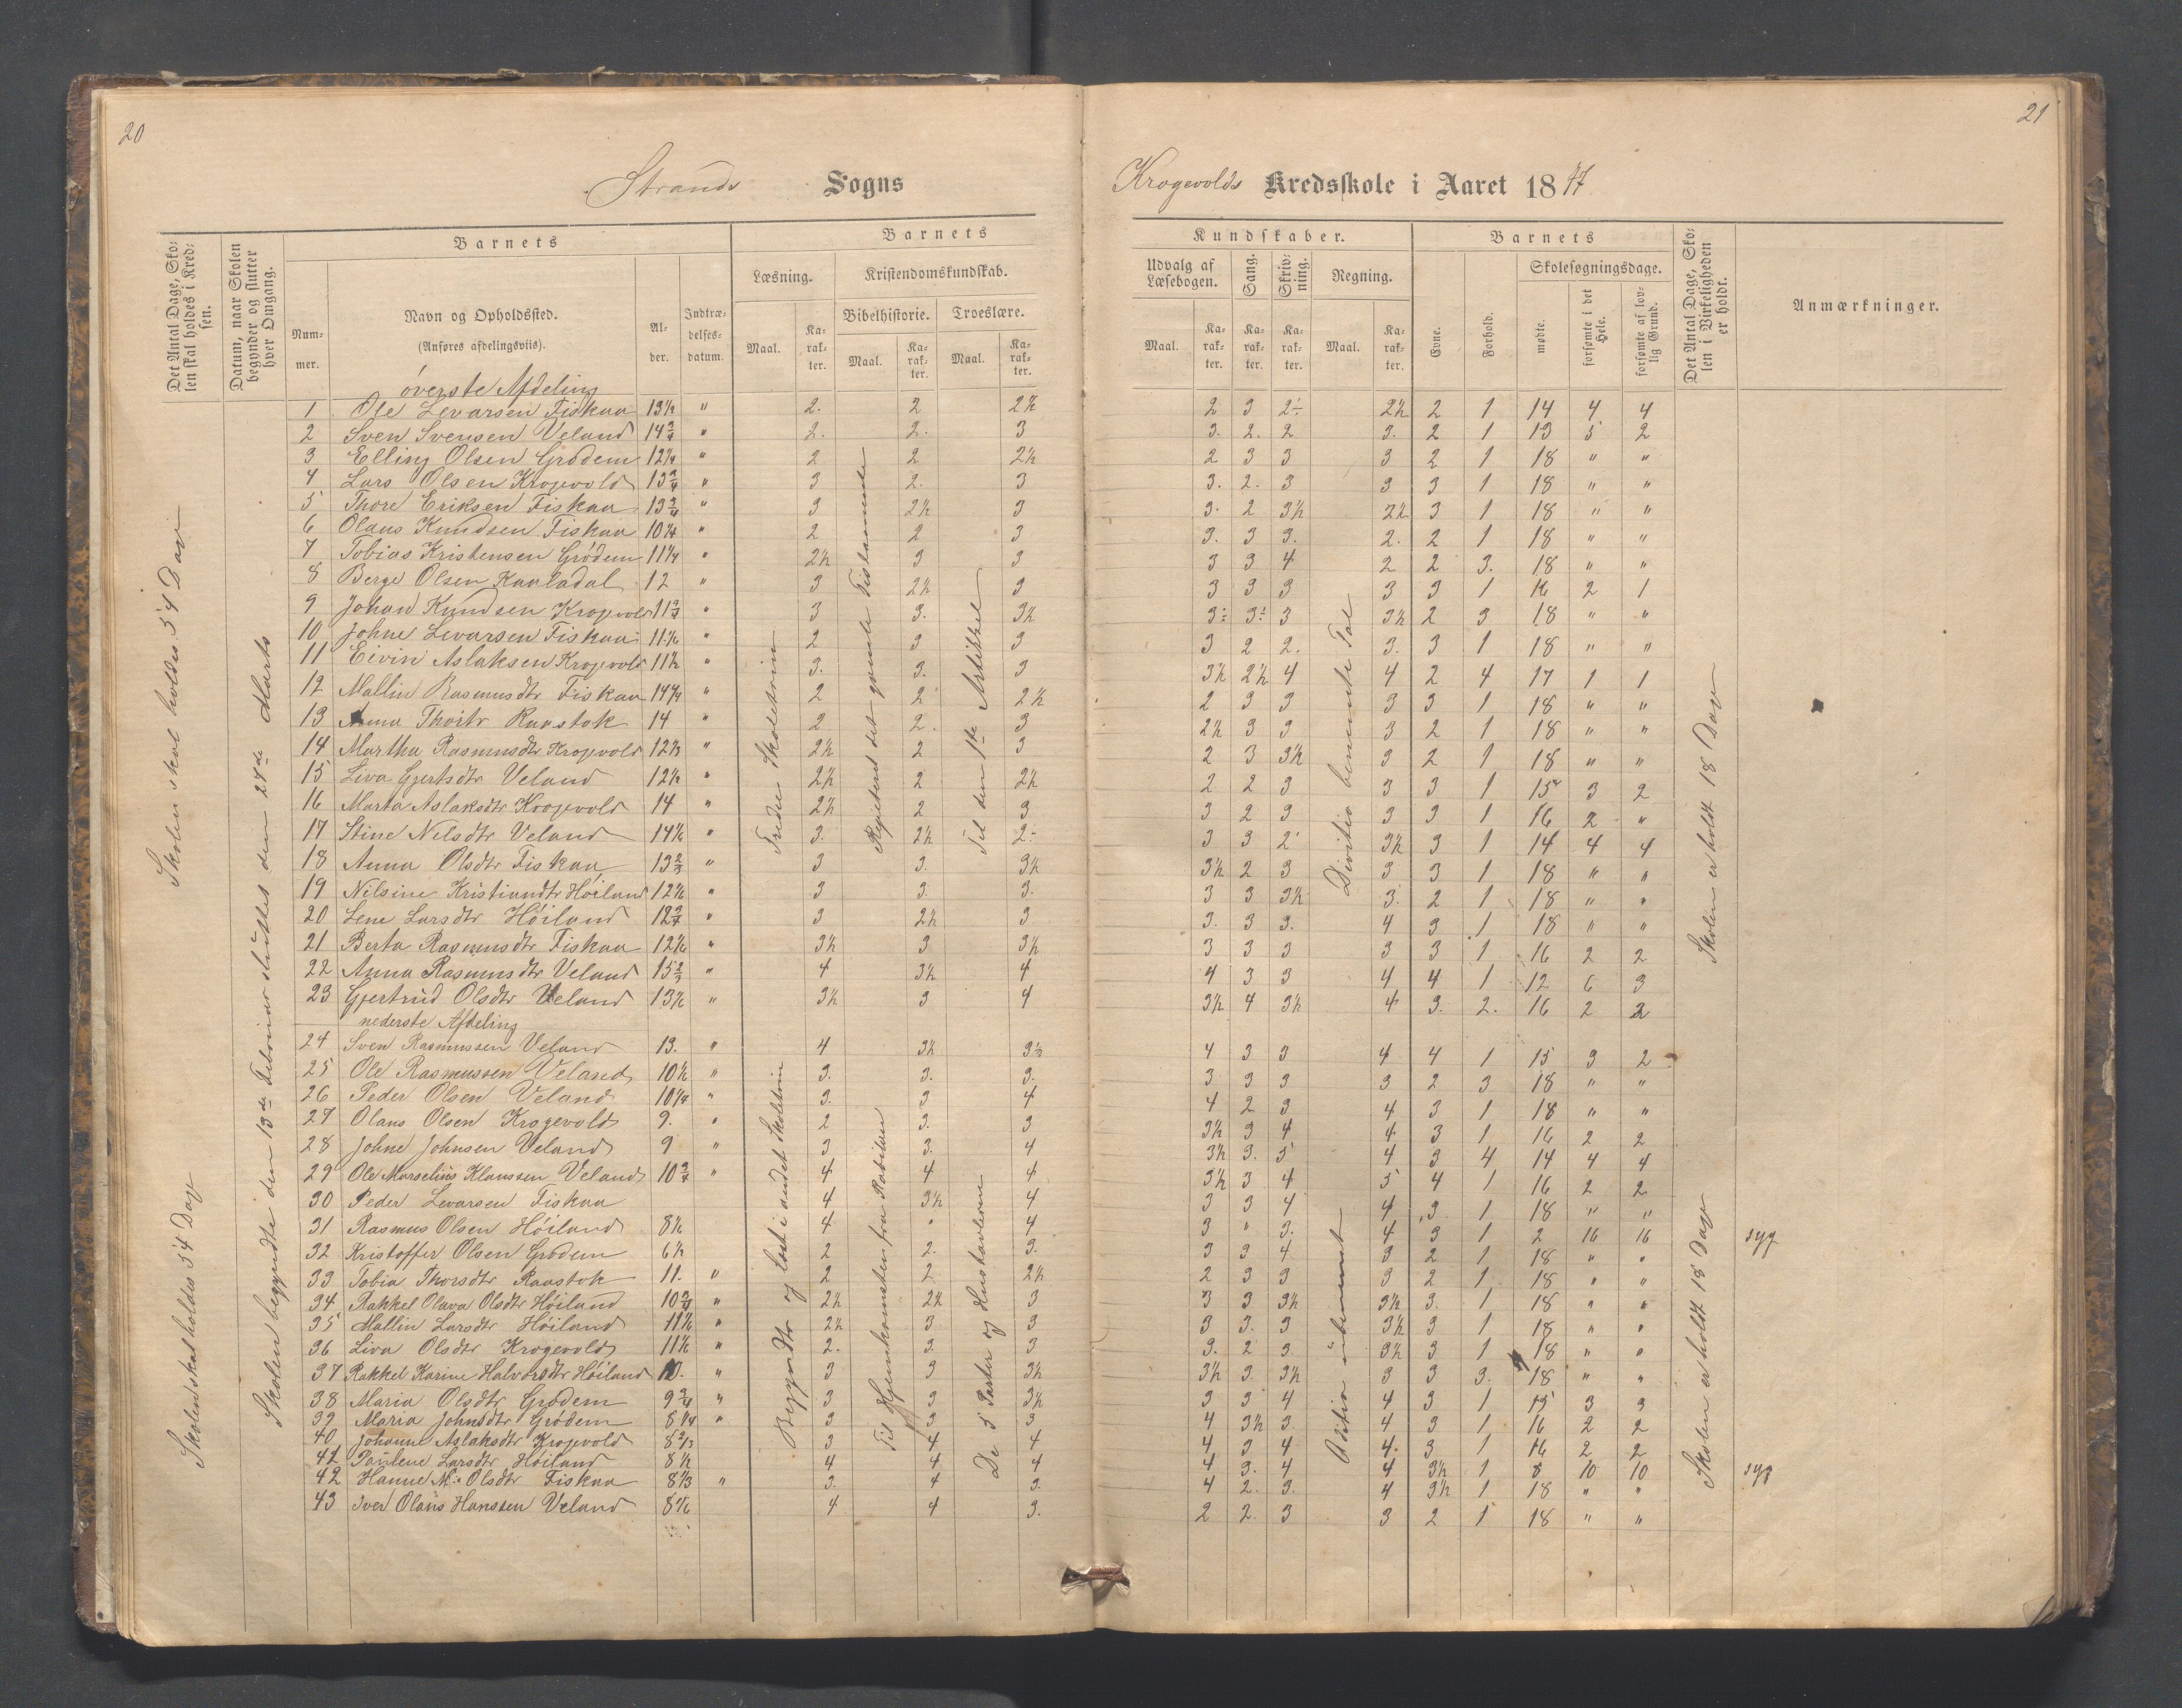 20
21
Strands Sogns
Krogevolds Kredsskole i Aaret 1877
Det Antal Dage, Skolen skal holdes i Kredsen.
Datum, naar Skolen begynder og slutter hver Omgang.
Barnets
Nummer.
Navn og Opholdssted.
(Anføres afdelingsviis).
Alder.
Indtrædelsesdatum.
Barnets
Læsning.
Kristendomskundskab.
Bibelhistorie.
Troeslære.
Maal.
Karakter.
Maal.
Karakter.
Maal.
Karakter.
Kundskaber.
Udvalg af Læsebogen.
Sang.
Skrivning.
Regning.
Maal.
Karakter.
Karakter.
Karakter.
Maal.
Karakter.
Barnets
Evne.
Forhold.
Skolesøgningsdage.
mødte.
forsømte i det Hele.
forsømte af lovlig Grund.
Det Antal Dage, Skolen i Virkeligheden er holdt.
Anmærkninger.
Skolen skal holdes 54 Dage
Skolen skal holdes 54 Dage
Skolen begyndte den 13de Februar sluttes den 24de Marts
Tredie Skoletrin
Repeteret det gamle Testamente
Til den 1ste Artikkel
Divitio benævnte Tal
Skolen er holdt 18 Dage
øverste Afdeling
1 Ole Levarsen Fiskaa 13½ " 2. 2 2½ 2 3 2÷ 2½ 2 1 14 4 4
2 Sven Svensen Veland 14¾ " 2. 2. 3 3. 2. 2 3. 2 1 13 5 2
3 Elling Olsen Grødem 12¼ " 2 2 2½ 2 3 3 3 2 1 18 " "
4 Lars Olsen Krogevold 13¾ " 3 2. 3 3. 2. 3 3 3 1 18 " "
5 Thore Eriksen Fiskaa 13¾ " 3 2½ 3 3. 2 3½ 2½ 3 1 18 " "
6 Olaus Knudsen Fiskaa 10¼ " 2 2 3 3. 3 3. 2. 2 1 18 " "
7 Tobias Kristensen Grødem 11¼ " 2½ 3 3 3 3 4 2 2 3. 18 " "
8 Berge Olsen Kaaladal 12 " 3 2½ 3 3 3 3 3 3 1 16 2 1
9 Johan Knudsen Krogevold 11¾ " 3 3. 3½ 3÷ 3÷ 3 3½ 2 3 18 " "
10 Johne Levarsen Fiskaa 11½ " 2 3 3 3 2 2. 3. 3 1 18 " "
11 Eivin Aslaksen Krogevold 11½ " 3. 3. 3 3½ 2½ 4 4 2 4 17 1 1
12 Mallin Rasmusdtr Fiskaa 14¼ " 2 2 2½ 2 3 3 3 3 1 18 " "
13 Anna Thorsdtr Raastok 14 " 2 2. 3 2½ 3 3 3 2 1 18 " "
14 Martha Rasmusdtr Krogevold 12½ " 2½ 2 3 2 3 3½ 3 2 1 18 " "
15 Liva Gjertsdtr Veland 12½ " 2½ 2 2½ 2 2 3 3 3 1 15 3 2
16 Marta Aslaksdtr Krogevold 14 " 2½ 2 3 3 2 3 3 3 1 16 2 "
17 Stine Nilsdtr Veland 14½ " 3. 2½ 2÷ 3 3 2 3½ 3 1 14 4 4
18 Anna Olsdtr Fiskaa 13⅔ " 3 3. 3½ 3½ 2 3 3 3 1 18 " "
19 Nilsine Kristiandtr Høiland 12½ " 3 3. 3. 3 3 3½ 3. 2 1 18 " "
20 Lene Larsdtr Høiland 12¾ " 3 2½ 3 3. 3 3. 4 3 1 18 " "
21 Berta Rasmusdtr Fiskaa 12½ " 3½ 3 3½ 3 3 3 3 3 1 16 2 2
22 Anna Rasmusdtr Veland 15⅔ " 4 3½ 4 4 3 3 4 4 1 12 6 3
23 Gjertrud Olsdtr Veland 13½ " 3½ 3 4 3½ 4 3½ 4 3. 2. 16 2 2
nederste Afdeling
Begyndte og læst i andet Skoletrin
Til Hjemkomsten fra Babilon
De 5 Parter og Hustavlerne
Adition ubenævnt
Skolen er holdt 18 Dage
24 Sven Rasmussen Veland 13. " 4 3½ 3½ 4 3 3 4 4 1 15 3 2
25 Ole Rasmussen Veland 10½ " 3. 3. 3. 3 3 3 3 2 3 18 " "
26 Peder Olsen Veland 10¼ " 3. 3 4 4 2 3 4 3 1 18 " "
27 Olaus Olsen Krogevold 9. " 2 3. 3 3½ 3 4 4 3 1 16 2 2
28 Johne Johnsen Veland 9 " 3 3. 4 3½ 3. 5 4 3 4 14 4 4
29 Ole Marselius Klaussen Veland 10¾ " 4 4 4 3½ 3 4 5 4 1 16 2 2
30 Peder Levarsen Fiskaa 4 3½ 4 3 3 4 4 3 1 18 " "
31 Rasmus Olsen Høiland 8½ 4 " 4 3 " 3. 4 3 1 2 16 16 syg
32 Kristoffer Olsen Grødem 6½ 2 2. 3. 3 3 4 3 2 1 18 " "
33 Tobia Thorsdtr Raastok 11. " 2 2 2½ 2 3 3 3 2 1 18 " "
34 Rakkel Olava Olsdtr Høiland 10¾ " 2½ 2½ 3 3 3 3½ 3½ 3. 1 18 " "
35 Mallin Larsdtr Høiland 11½ " 2½ 3 3 3 3. 3 3½ 3 1 18 " "
36 Liva Olsdtr Krogevold 11½ " 2. 3. 3 3. 2 3 3½ 3 1 18 " "
37 Rakkel Karine Halvorsdtr Høiland 10. " 3 3 3½ 3½ 3. 3½ 3 3 3. 18 " "
38 Maria Olsdtr Grødem 9¾ " 3 3 3½ 3 3 4 4 3 1 15 3 3
39 Maria Johnsdtr Grødem 8¼ " 3 3 3 4 3½ 3. 4 3 1 16 2 2
40 Johanne Aslaksdtr Krogevold 8⅔ 3 4 4 4 3 4 4. 3 1 16 2 2
41 Paulene Larsdtr Høiland 8½ 4 4 4 4 3. 4 4 3½ 1 8 10 10 syg
42 Hanne M. Olsdtr Fiskaa 8⅓ " 3. 4 3. 4 2. 3. 4 3½ 1 18 " "
43 Iver Olaus Hanssen Veland 8½ 4 4 3. 2 2. 3 3 2 1 18 " "